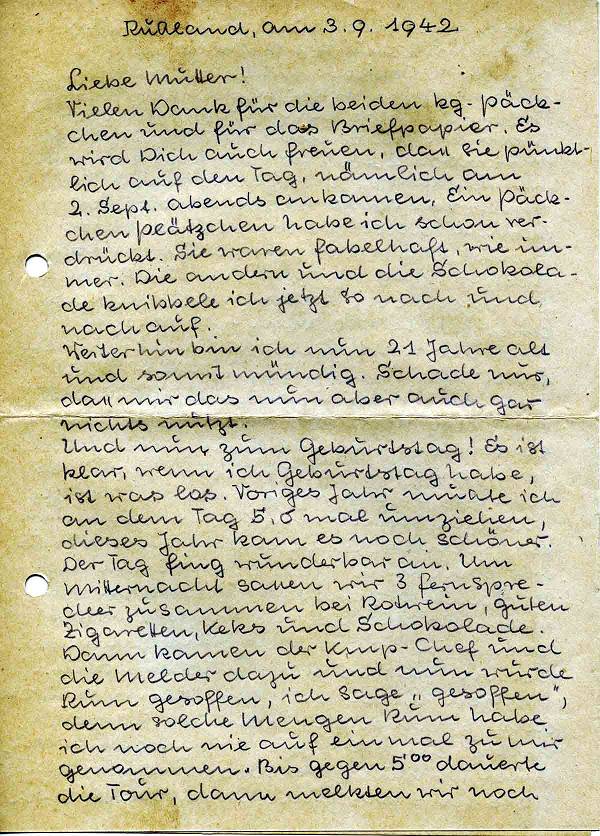 Rußland, am 3.9.1942
Liebe Mutter!
Vielen Dank für die beiden kg-Päck-
chen und für das Briefpapier. Es
wird Dich auch freuen, daß sie pünkt-
lich auf den Tag, nämlich am
2. Sept. abends ankamen. Ein Päck-
chen Plätzchen habe ich schon ver-
drückt. Sie waren fabelhaft, wie im-
mer. Die andern und die Schokola-
de knibbele ich jetzt so nach und
nach auf.
Weiterhin bin ich nun 21 Jahre alt
und somit mündig. Schade nur,
daß mir das nun aber auch gar
nichts nützt.
Und nun zum Geburtstag! Es ist
klar, wenn ich Geburtstag habe,
ist was los. Voriges Jahr mußte ich
an dem Tag 5,6 mal umziehen,
dieses Jahr kam es noch schöner.
Der Tag fing wunderbar an. Um
Mitternacht saßen wir 3 Fernspre-
cher zusammen bei Rotwein, guten
Zigaretten, Keks und Schokolade.
Dann kamen der Kmp-Chef und
die Melder dazu und nun wurde
Rum gesoffen, ich sage „gesoffen",
denn solche Mengen Rum habe
ich noch nie auf einmal zu mir
genommen. Bis gegen 5⁰⁰ dauerte
die Tour, dann melkten wir noch